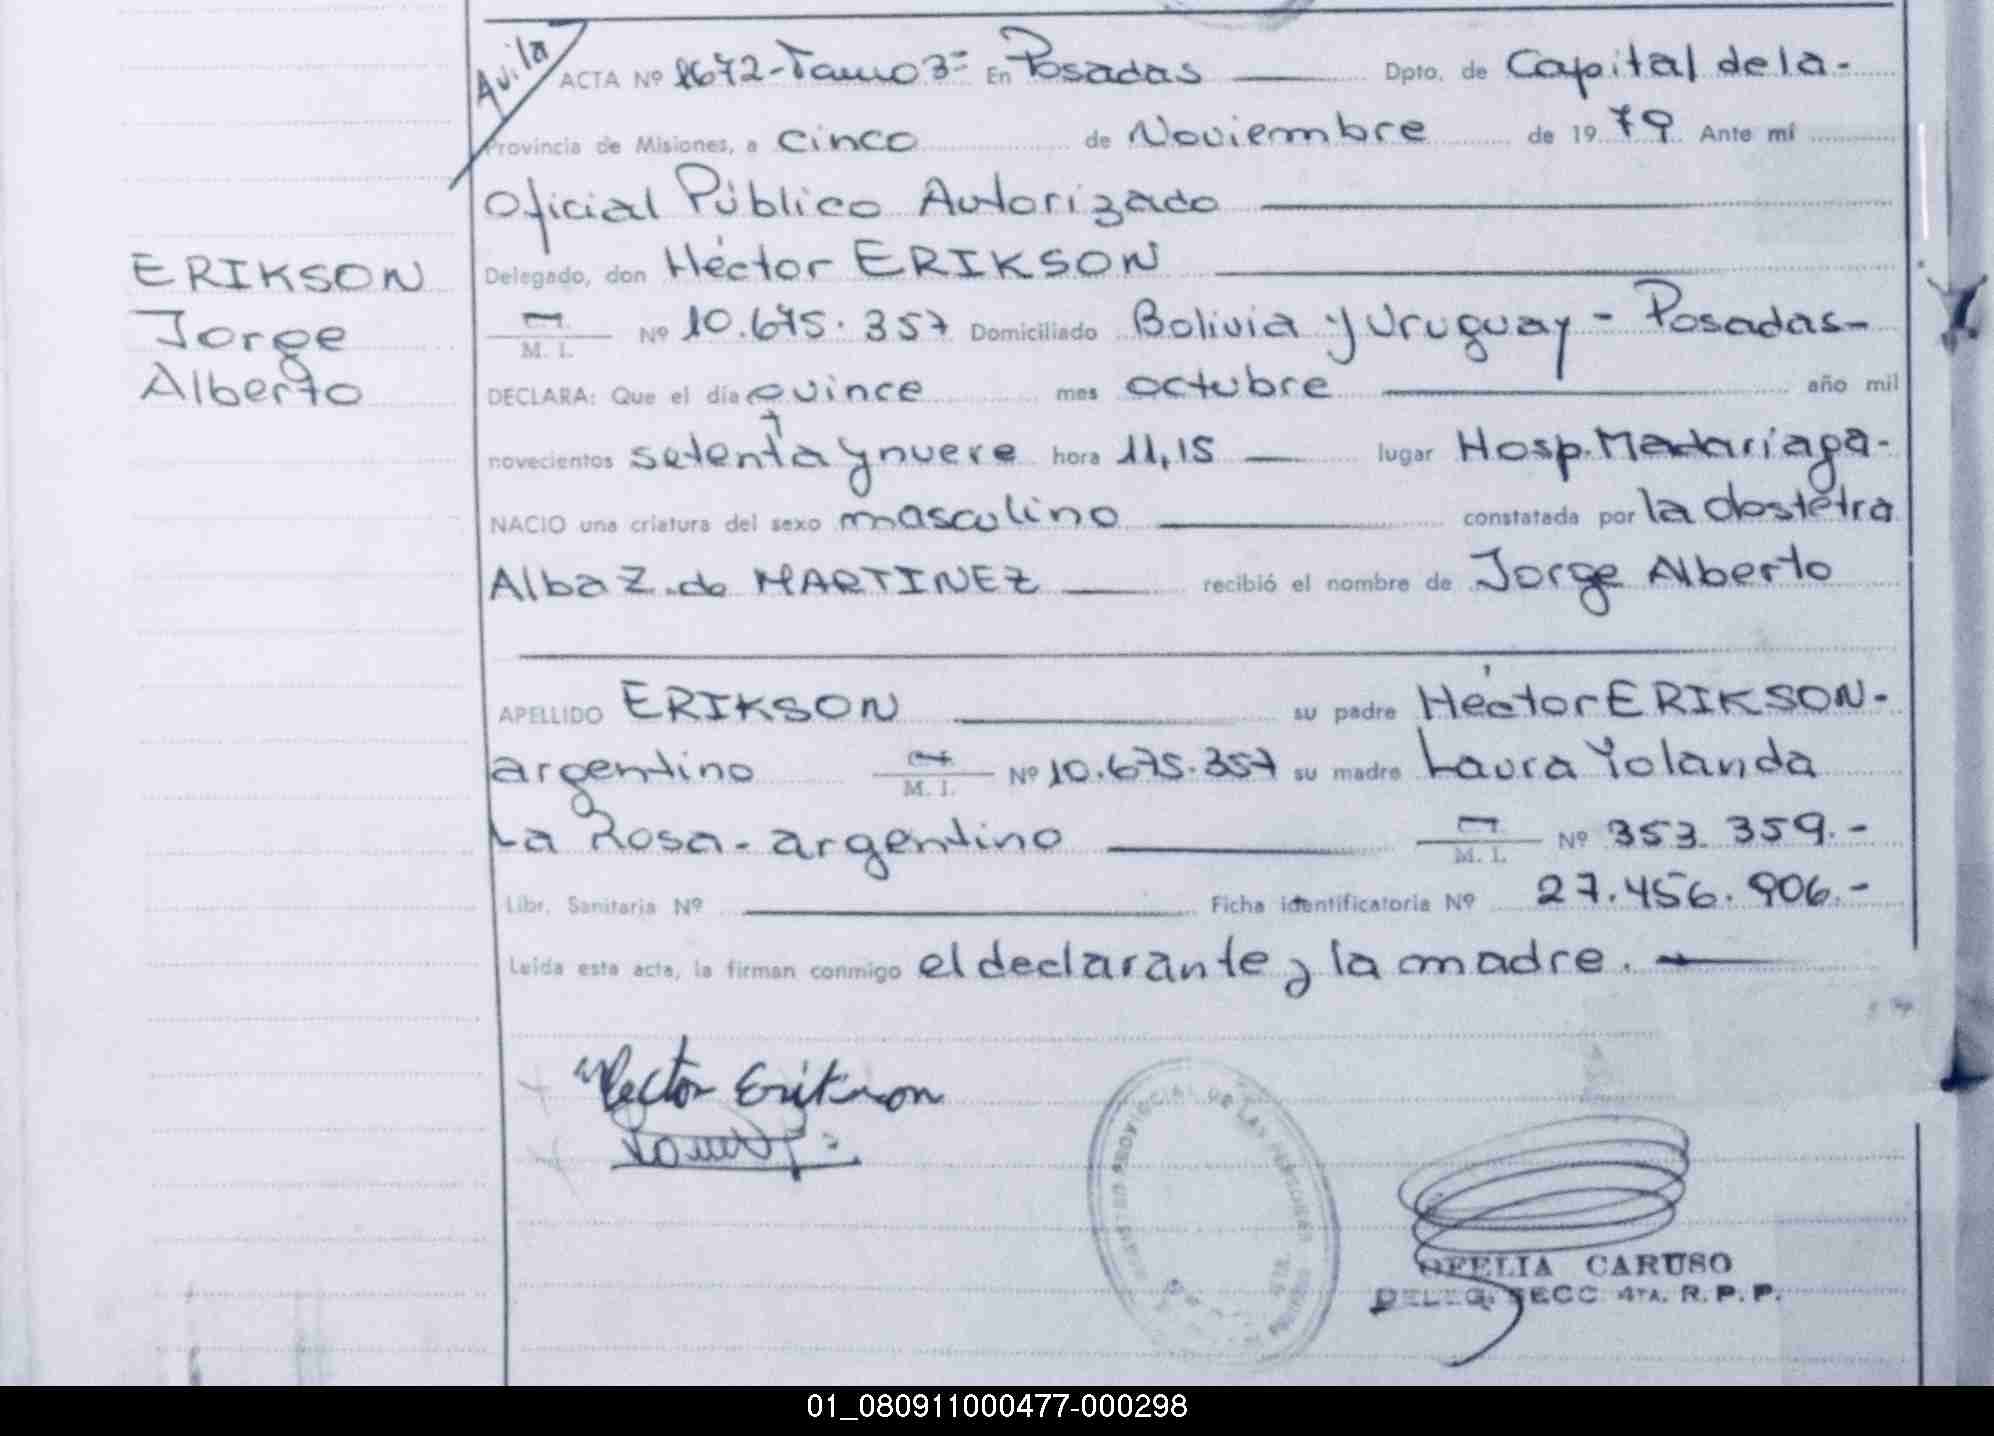 Avila
ACTA Nº 1672-Tomo 3º En Posadas Dpto. de Capital de la-
Provincia de Misiones, a cinco de Noviembre de 1979 Ante mí
Oficial Público Autorizado
ERIKSON
Jorge
Alberto
Delegado, don Héctor ERIKSON
M. I. Nº 10.675.357 Domiciliado Bolivia y Uruguay - Posadas-
DECLARA: Que el día quince mes octubre año mil
novecientos setenta y nueve hora 11,15 lugar Hosp. Madariaga-
NACIO una criatura del sexo masculino constatada por la obstétra
Alba Z. de MARTINEZ recibió el nombre de Jorge Alberto
APELLIDO ERIKSON su padre Héctor ERIKSON-
argentino M. I. Nº 10.675.357 su madre Laura Yolanda
La Rosa-argentino M. I. Nº 353.359.-
Libr. Sanitaria Nº Ficha identificatoria Nº 27.456.906.-
Leída esta acta, la firman conmigo el declarante y la madre.
Hector Erikson
OFELIA CARUSO
DELEG. SECC 4TA. R.P.P.
01_080911000477-000298